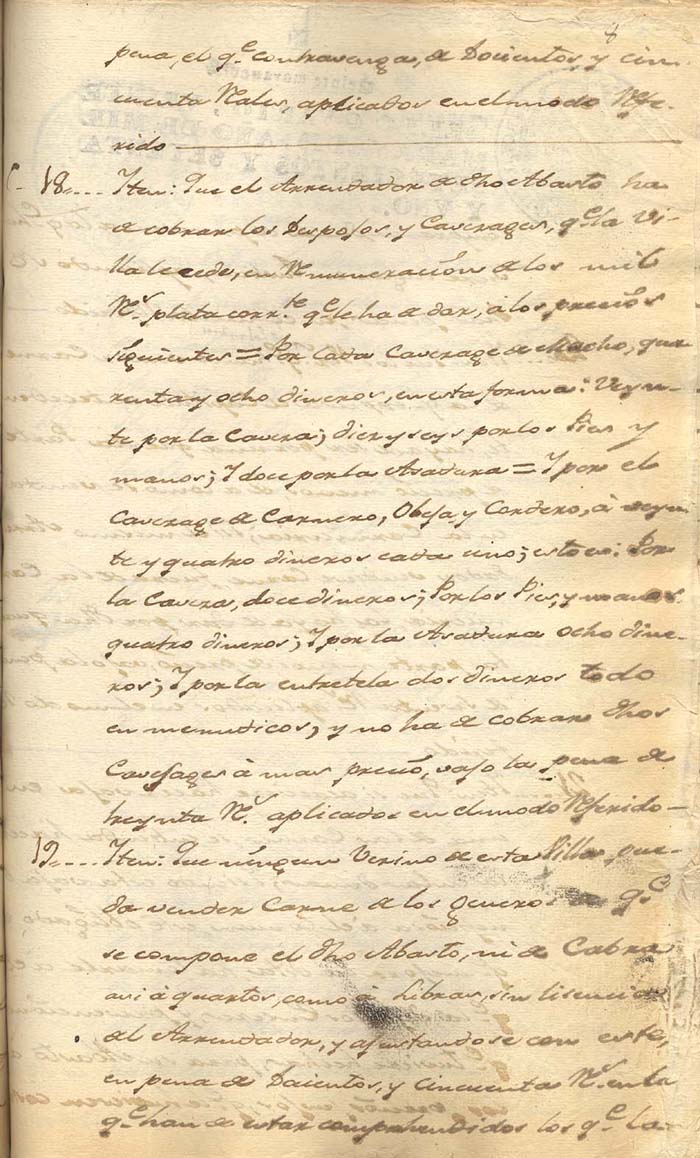 8
pena, el q.e contravenga, de Docientos y cin
cuenta Reales, aplicados en el modo Refe-
rido
18.... Iten: Que el Arrendador de dho Abasto ha
de cobrar los Despojos, y Caverages, q.e la Vi-
lla le cede, en Remuneración de los mil
R.s plata corr.te q.e le ha de dar, à los precios
siguientes = Por cada Caverage de Macho, qua
renta y ocho dineros, en esta forma: Veyn-
te por la Cavera; diez y seys por los Pies y
manos; I doce por la Asadura = I por el
Caverage de Carnero, Obeja y Cordero, à veyn
te y quatro dineros cada uno; esto es: Por
la Cavera, doce dineros; Por los Pies, y manos
quatro dineros; I por la Asadura ocho dine-
ros; I por la entretela dos dineros todo
en menudicos; y no ha de cobrar dhos
Cavesages à mas precio, vajo la pena de
treynta R.s aplicados en el modo Referido
19.... Iten: Que ningun Vecino de esta Villa pue-
da vender Carne de los generos de q.e
se compone el dho Abasto, ni de Cabra
asi à quartos, como à Libras, sin licencia
del Arrendador, y ajustandose con este,
en pena de Docientos, y cincuenta R.s en la
q.e han de estar comprehendidos los q.e la-